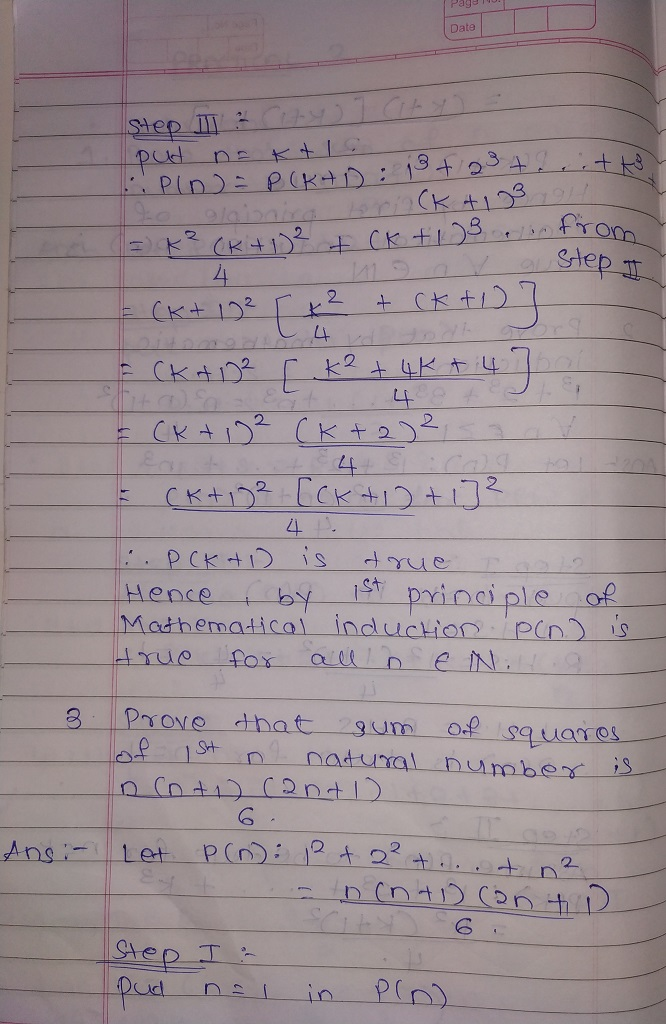 Page No.
Data
Step III :-
put n = k + 1.
∴ P(n) = P(k+1) : 1³ + 2³ + . . . + k³ +
(k+1)³
= k² (k+1)² + (k+1)³ . . from
4
Step II
= (k+1)² [ k² + (k+1) ]
4
= (k+1)² [ k² + 4k + 4 ]
4
= (k+1)² (k+2)²
4
= (k+1)² [(k+1)+1]²
4.
∴ P(k+1) is true
Hence, by 1st principle of
Mathematical induction P(n) is
true for all n ∈ IN.
3. Prove that sum of squares
of 1st n natural number is
n(n+1) (2n+1)
6.
Ans :- Let P(n) : 1² + 2² + . . . + n²
= n(n+1) (2n+1)
6.
Step I :-
put n = 1 in P(n)